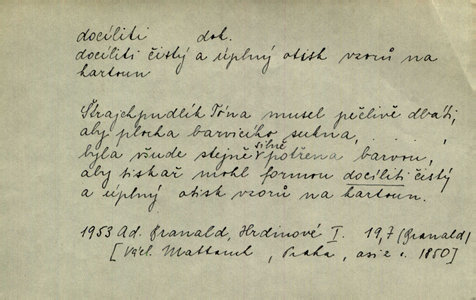 docíliti dok.
docíliti čistý a úplný otisk vzorů na
kartoun
Štrajchpudlík Tóna musel pečlivě dbáti,
aby plocha barvicího sukna, . . . ,
byla všude stejně silně potřena barvou,
aby tiskař mohl formou docíliti čistý
a úplný otisk vzorů na kartoun.
1953 Ad. Branald, Hrdinové I. 19,7 (Branald)
[Václ. , Praha, asi r. 1850]